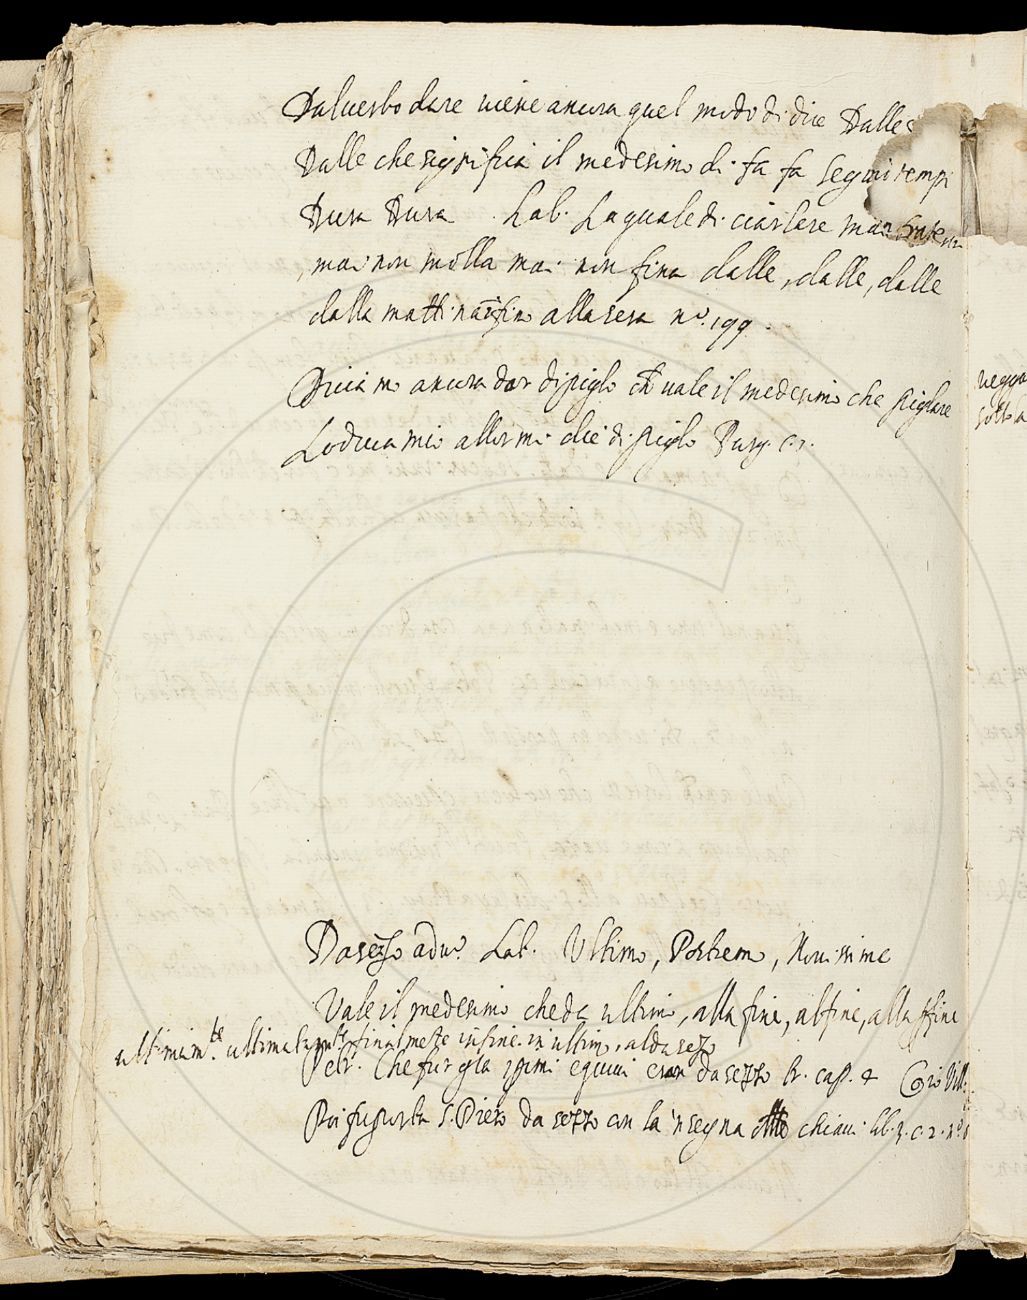 Dal verbo dare viene ancora quel modo di dire Dalle
Dalle che significa il medesimo di fa fa seguitempi
Dura Dura . Lab. La quale di ciarlare mai
, mai non molla mai non fina dalle, dalle, dalle
dalla mattina infino alla sera n.º 199.
Diciamo ancora dar di piglo che vale il medesimo che piglare
Lo duca mio allor mi diè di piglo Purg. c. 1.
Da sezzo adv.º Lat. Ultimo, Postremo, Novissime
Vale il medesimo che da ultimo, alla fine, al fine, alla fine
ultimam.te ultimatam.te finalmente infine in ultimo, al da sezo
Petr. Che fur già primi e quivi eran da sezzo tr. cap. 4 Gio Vill.
Poi fu porta S. Piero da sezzo con la 'nsegna delle chiavi lib. 3. c. 2. n.º 1